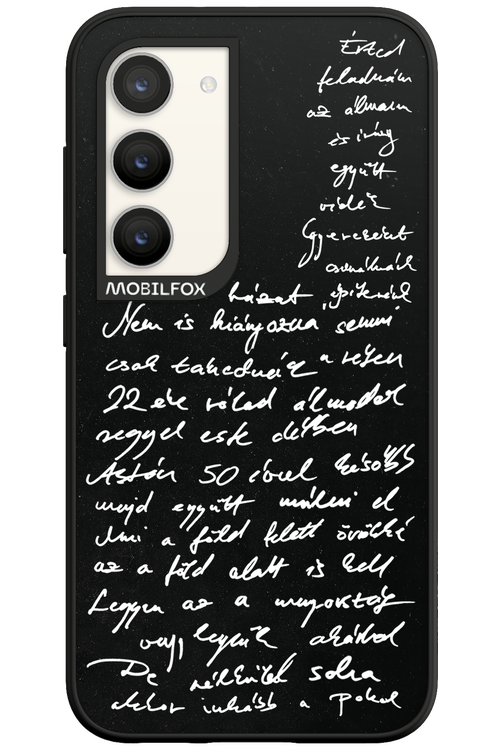 Érted
feladnám
az álmaim
és így
együtt
vinnék
Gyereket
csinálnánk
MOBILFOX
házat építenénk
Nem is hiányozna semmi
csak a
22 éve rólad álmodok
reggel este délben
Aztán 50 évvel később
majd együtt múlni el
Ami a föld felett örökké
az a föld alatt is kell
Legyen az a mennyország
vagy legyünk akárhol
De nélküled soha
akkor inkább a pokol